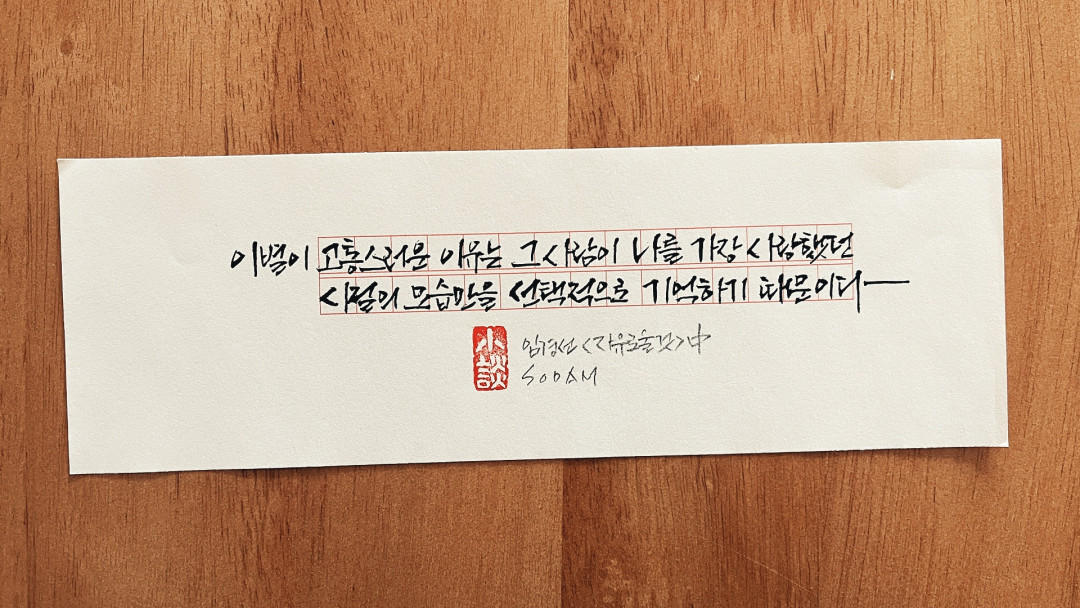 이별이 고통스러운 이유는 그 사람이 나를 가장 사랑했던
시절의 모습만을 선택적으로 기억하기 때문이다—
小談
임경선 <자유로울 것> 中
SODAM